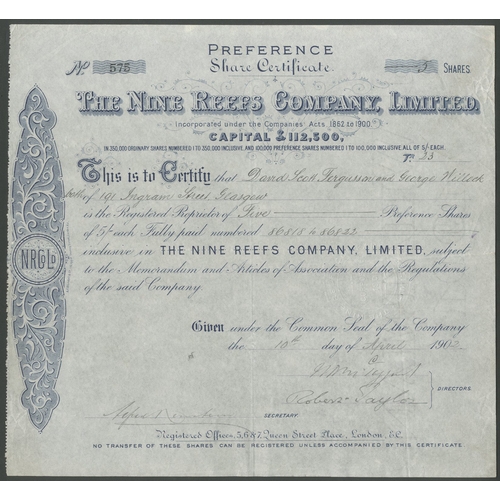 PREFERENCE
Share Certificate
No. 575
5 SHARES
THE NINE REEFS COMPANY, LIMITED.
Incorporated under the Companies' Acts, 1862 to 1900.
CAPITAL £112,500,
IN 350,000 ORDINARY SHARES NUMBERED 1 TO 350,000 INCLUSIVE, AND 100,000 PREFERENCE SHARES NUMBERED 1 TO 100,000 INCLUSIVE ALL OF 5/- EACH.
This is to Certify that David Scott Fergusson and George Willock
both of 190 Ingram Street, Glasgow
is the Registered Proprietor of Five Preference Shares
of 5/- each Fully paid numbered 86818 to 86822
inclusive in THE NINE REEFS COMPANY, LIMITED, subject
to the Memorandum and Articles of Association and the Regulations
of the said Company.
Given under the Common Seal of the Company
the 10th day of April 1902.
Robert Taylor
DIRECTORS
SECRETARY
Registered Offices, 5, 6 & 7, Queen Street Place, London, E.C.
NO TRANSFER OF THESE SHARES CAN BE REGISTERED UNLESS ACCOMPANIED BY THIS CERTIFICATE
NRCoLD